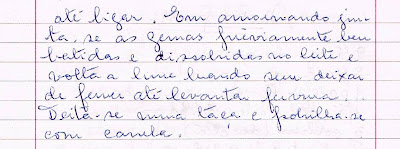 até ligar. Em amornando jun-
ta-se as gemas préviamente bem
batidas e dissolvidas no leite e
volta a lume brando sem deixar
de ferver até levantar fervura...
Deita-se numa taça e polvilha-se
com canela.